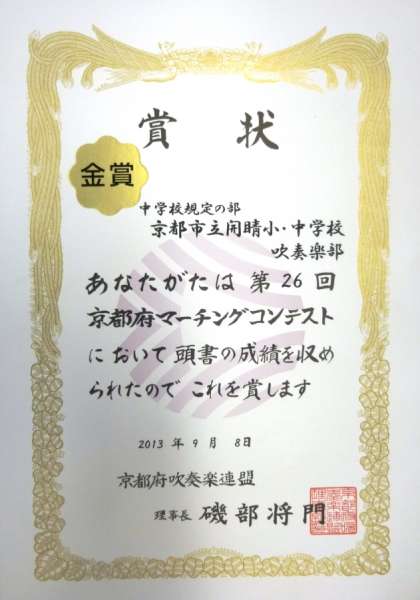 賞状
金賞
中学校規定の部
京都市立開睛小・中学校
吹奏楽部
あなたがたは第26回
京都府マーチングコンテスト
において頭書の成績を収め
られたのでこれを賞します
2013年9月8日
京都府吹奏楽連盟
理事長 磯部将門